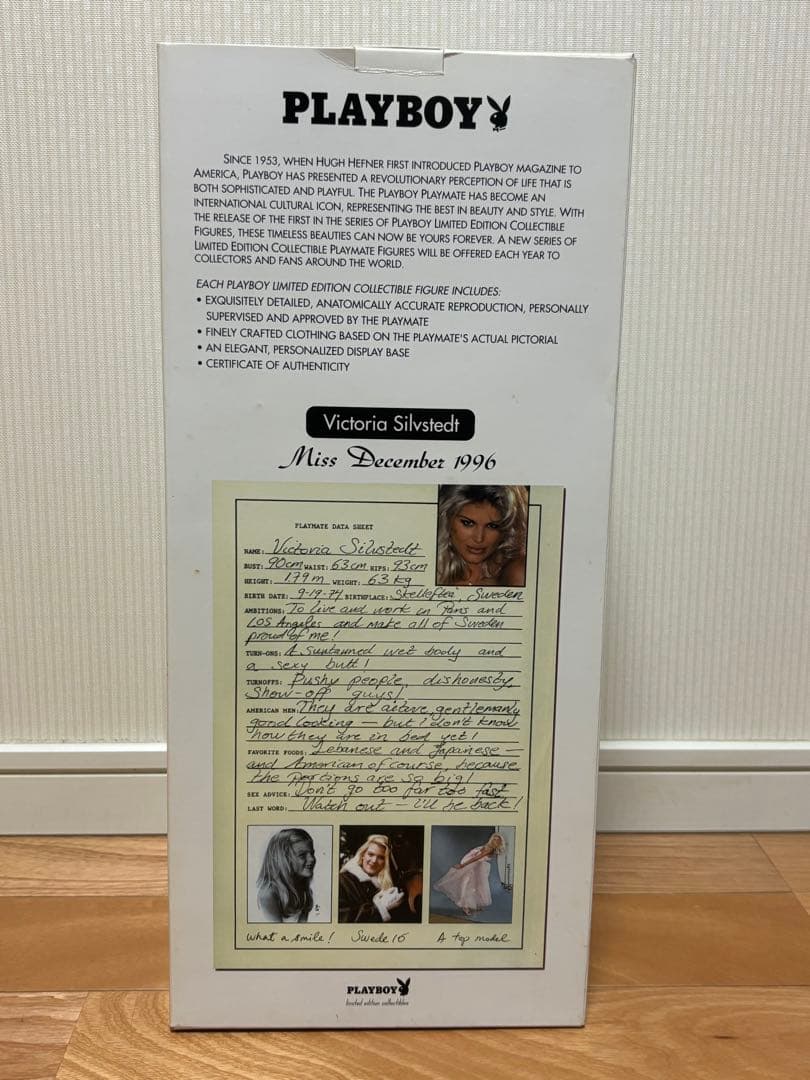 PLAYBOY
SINCE 1953, WHEN HUGH HEFNER FIRST INTRODUCED PLAYBOY MAGAZINE TO
AMERICA, PLAYBOY HAS PRESENTED A REVOLUTIONARY PERCEPTION OF LIFE THAT IS
BOTH SOPHISTICATED AND PLAYFUL. THE PLAYBOY PLAYMATE HAS BECOME AN
INTERNATIONAL CULTURAL ICON, REPRESENTING THE BEST IN BEAUTY AND STYLE. WITH
THE RELEASE OF THE FIRST IN THE SERIES OF PLAYBOY LIMITED EDITION COLLECTIBLE
FIGURES, THESE TIMELESS BEAUTIES CAN NOW BE YOURS FOREVER. A NEW SERIES OF
LIMITED EDITION COLLECTIBLE PLAYMATE FIGURES WILL BE OFFERED EACH YEAR TO
COLLECTORS AND FANS AROUND THE WORLD.
EACH PLAYBOY LIMITED EDITION COLLECTIBLE FIGURE INCLUDES:
• EXQUISITELY DETAILED, ANATOMICALLY ACCURATE REPRODUCTION, PERSONALLY
SUPERVISED AND APPROVED BY THE PLAYMATE
• FINELY CRAFTED CLOTHING BASED ON THE PLAYMATE'S ACTUAL PICTORIAL
• AN ELEGANT, PERSONALIZED DISPLAY BASE
• CERTIFICATE OF AUTHENTICITY
Victoria Silvstedt
Miss December 1996
PLAYMATE DATA SHEET
NAME: Victoria Silvstedt
BUST: 90cm WAIST: 63cm HIPS: 93cm
HEIGHT: 1.79m WEIGHT: 63 kg
BIRTH DATE: 9-19-74 BIRTHPLACE: Skellefteå, Sweden
AMBITIONS: To live and work in Paris and
Los Angeles and make all of Sweden
proud of me!
TURN-ONS: A suntanned wet body and
a sexy butt!
TURNOFFS: Pushy people, dishonesty,
Show-off guys!
AMERICAN MEN: They are active, gentlemanly
good looking — but I don't know
how they are in bed yet!
FAVORITE FOODS: Lebanese and Japanese —
and American of course, because
the portions are so big!
SEX ADVICE: Don't go too far too fast
LAST WORD: Watch out — I'll be back!
What a smile! Swede 16 A top model
PLAYBOY
limited edition collectibles